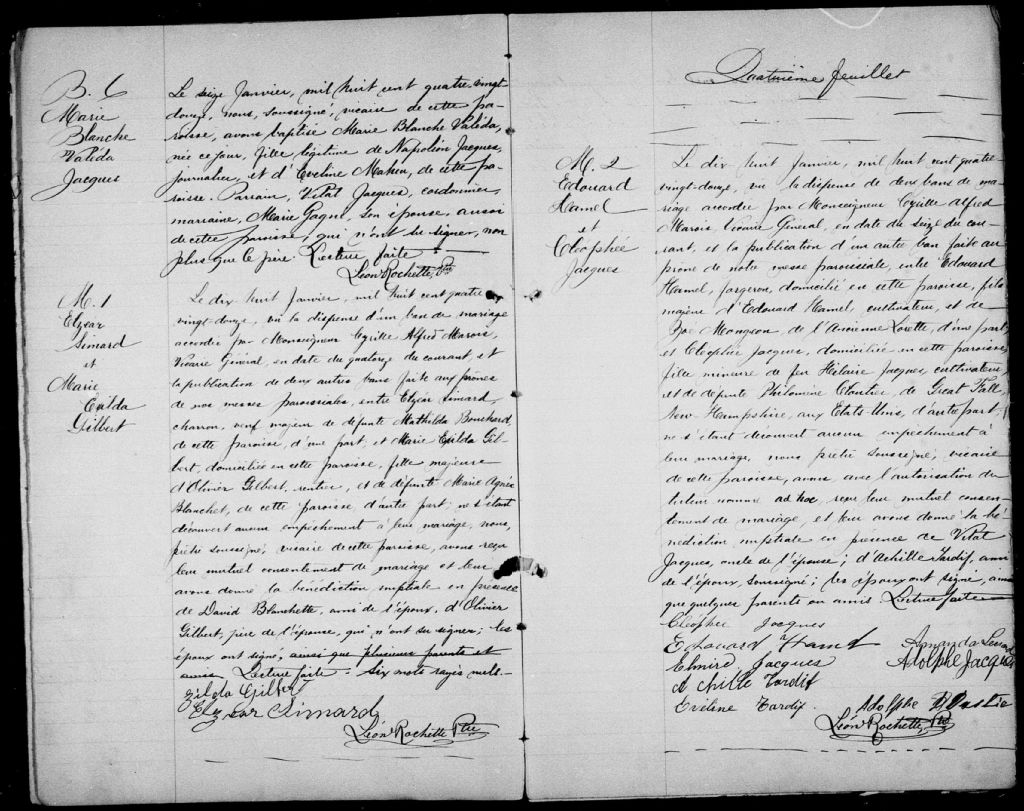 B. 6
Marie
Blanche
Valéda
Jacques
Le seize Janvier, mil huit cent quatre-vingt-
douze, nous, soussigné, vicaire de cette pa-
roisse, avons baptisé Marie Blanche Valéda,
née ce jour, fille légitime de Napoléon Jacques,
journalier, et d'Eveline Maheu, de cette pa-
roisse. Parrain, Vital Jacques, cordonnier,
marraine, Marie Gagné, son épouse, aussi
de cette paroisse, qui n'ont su signer, non
plus que le père. Lecture faite
Léon Rochette, Ptre
M. 1
Elzéar
Simard
et
Marie
Exilda
Gilbert
Le dix huit Janvier, mil huit cent quatre
vingt-douze, vu la dispense d'un ban de mariage
accordée par Monseigneur Cyrille Alfred Marois,
Vicaire Général, en date du quatorze du courant, et
la publication de deux autres bans faite aux prônes
de nos messes paroissiales, entre Elzéar Simard,
charron, veuf majeur de défunte Mathilda Bouchard,
de cette paroisse, d'une part, et Marie Exilda Gil-
bert, domiciliée en cette paroisse, fille majeure
d'Olivier Gilbert, rentier, et de défunte Marie Agnès
Blanchet, de cette paroisse, d'autre part; ne s'étant
découvert aucun empêchement à leur mariage, nous,
prêtre soussigné, vicaire de cette paroisse, avons reçu
leur mutuel consentement de mariage et leur
avons donné la bénédiction nuptiale en présence
de David Blanchette, ami de l'époux, d'Olivier
Gilbert, père de l'épouse, qui n'ont su signer; les
époux ont signé, ainsi que plusieurs parents et
amis. Lecture faite. Six mots rayés nuls.
Zilda Gilbert
Elzear Simard
Léon Rochette Ptre
Quatrième feuillet
M. 2
Edouard
Hamel
et
Cléophée
Jacques
Le dix huit Janvier, mil huit cent quatre
vingt-douze, vu la dispense de deux bans de ma-
riage accordée par Monseigneur Cyrille Alfred
Marois Vicaire Général, en date du seize du cou-
rant, et la publication d'un autre ban faite au
prône de notre messe paroissiale, entre Edouard
Hamel, forgeron, domicilié en cette paroisse, fils
majeur d'Edouard Hamel, cultivateur, et de
Zoé Mongeon, de l'Ancienne Lorette, d'une part;
et Cléophée Jacques, domiciliée en cette paroisse,
fille mineure de feu Hilaire Jacques, cultivateur,
et de défunte Philomène Cloutier, de Great Fall,
New Hampshire, aux Etats Unis, d'autre part;
ne s'étant découvert aucun empêchement à
leur mariage, nous prêtre soussigné, vicaire
de cette paroisse, avons avec l'autorisation du
tuteur nommé ad hoc, reçu leur mutuel consen-
tement de mariage, et leur avons donné la bé-
nédiction nuptiale en présence de Vital
Jacques, oncle de l'épouse; d'Achille Tardif, ami
de l'époux, soussigné; les époux ont signé, ainsi
que quelques parents ou amis. Lecture faite
Cléophée Jacques
Edouard Hamel Amanda
Elmire Jacques Adolphe Jacques
Achille Tardif
Eveline Tardif. Adolphe
Léon Rochette, Ptre